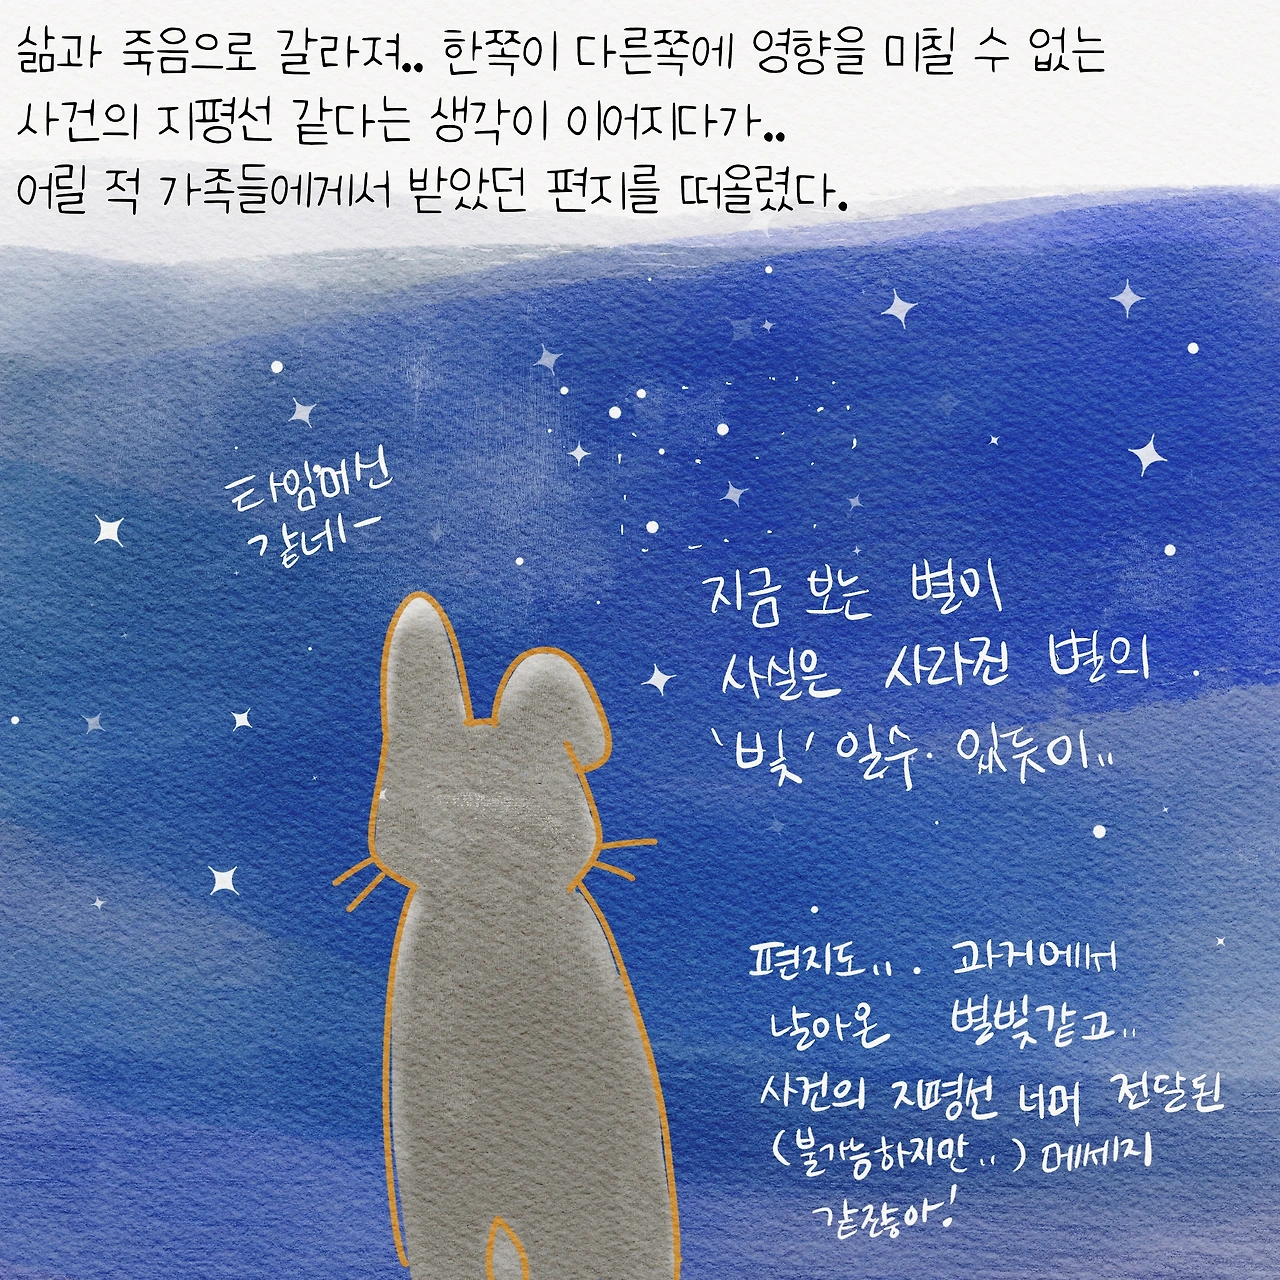 삶과 죽음으로 갈라져.. 한쪽이 다른쪽에 영향을 미칠 수 없는
사건의 지평선 같다는 생각이 이어지다가..
어릴 적 가족들에게서 받았던 편지를 떠올렸다.
타임머신
같네-
지금 보는 별이
사실은 사라진 별의
'빛' 일수. 있듯이..
편지도... 과거에서
날아온 별빛같고..
사건의 지평선 너머 전달된
(불가능하지만..) 메세지
같잖아!